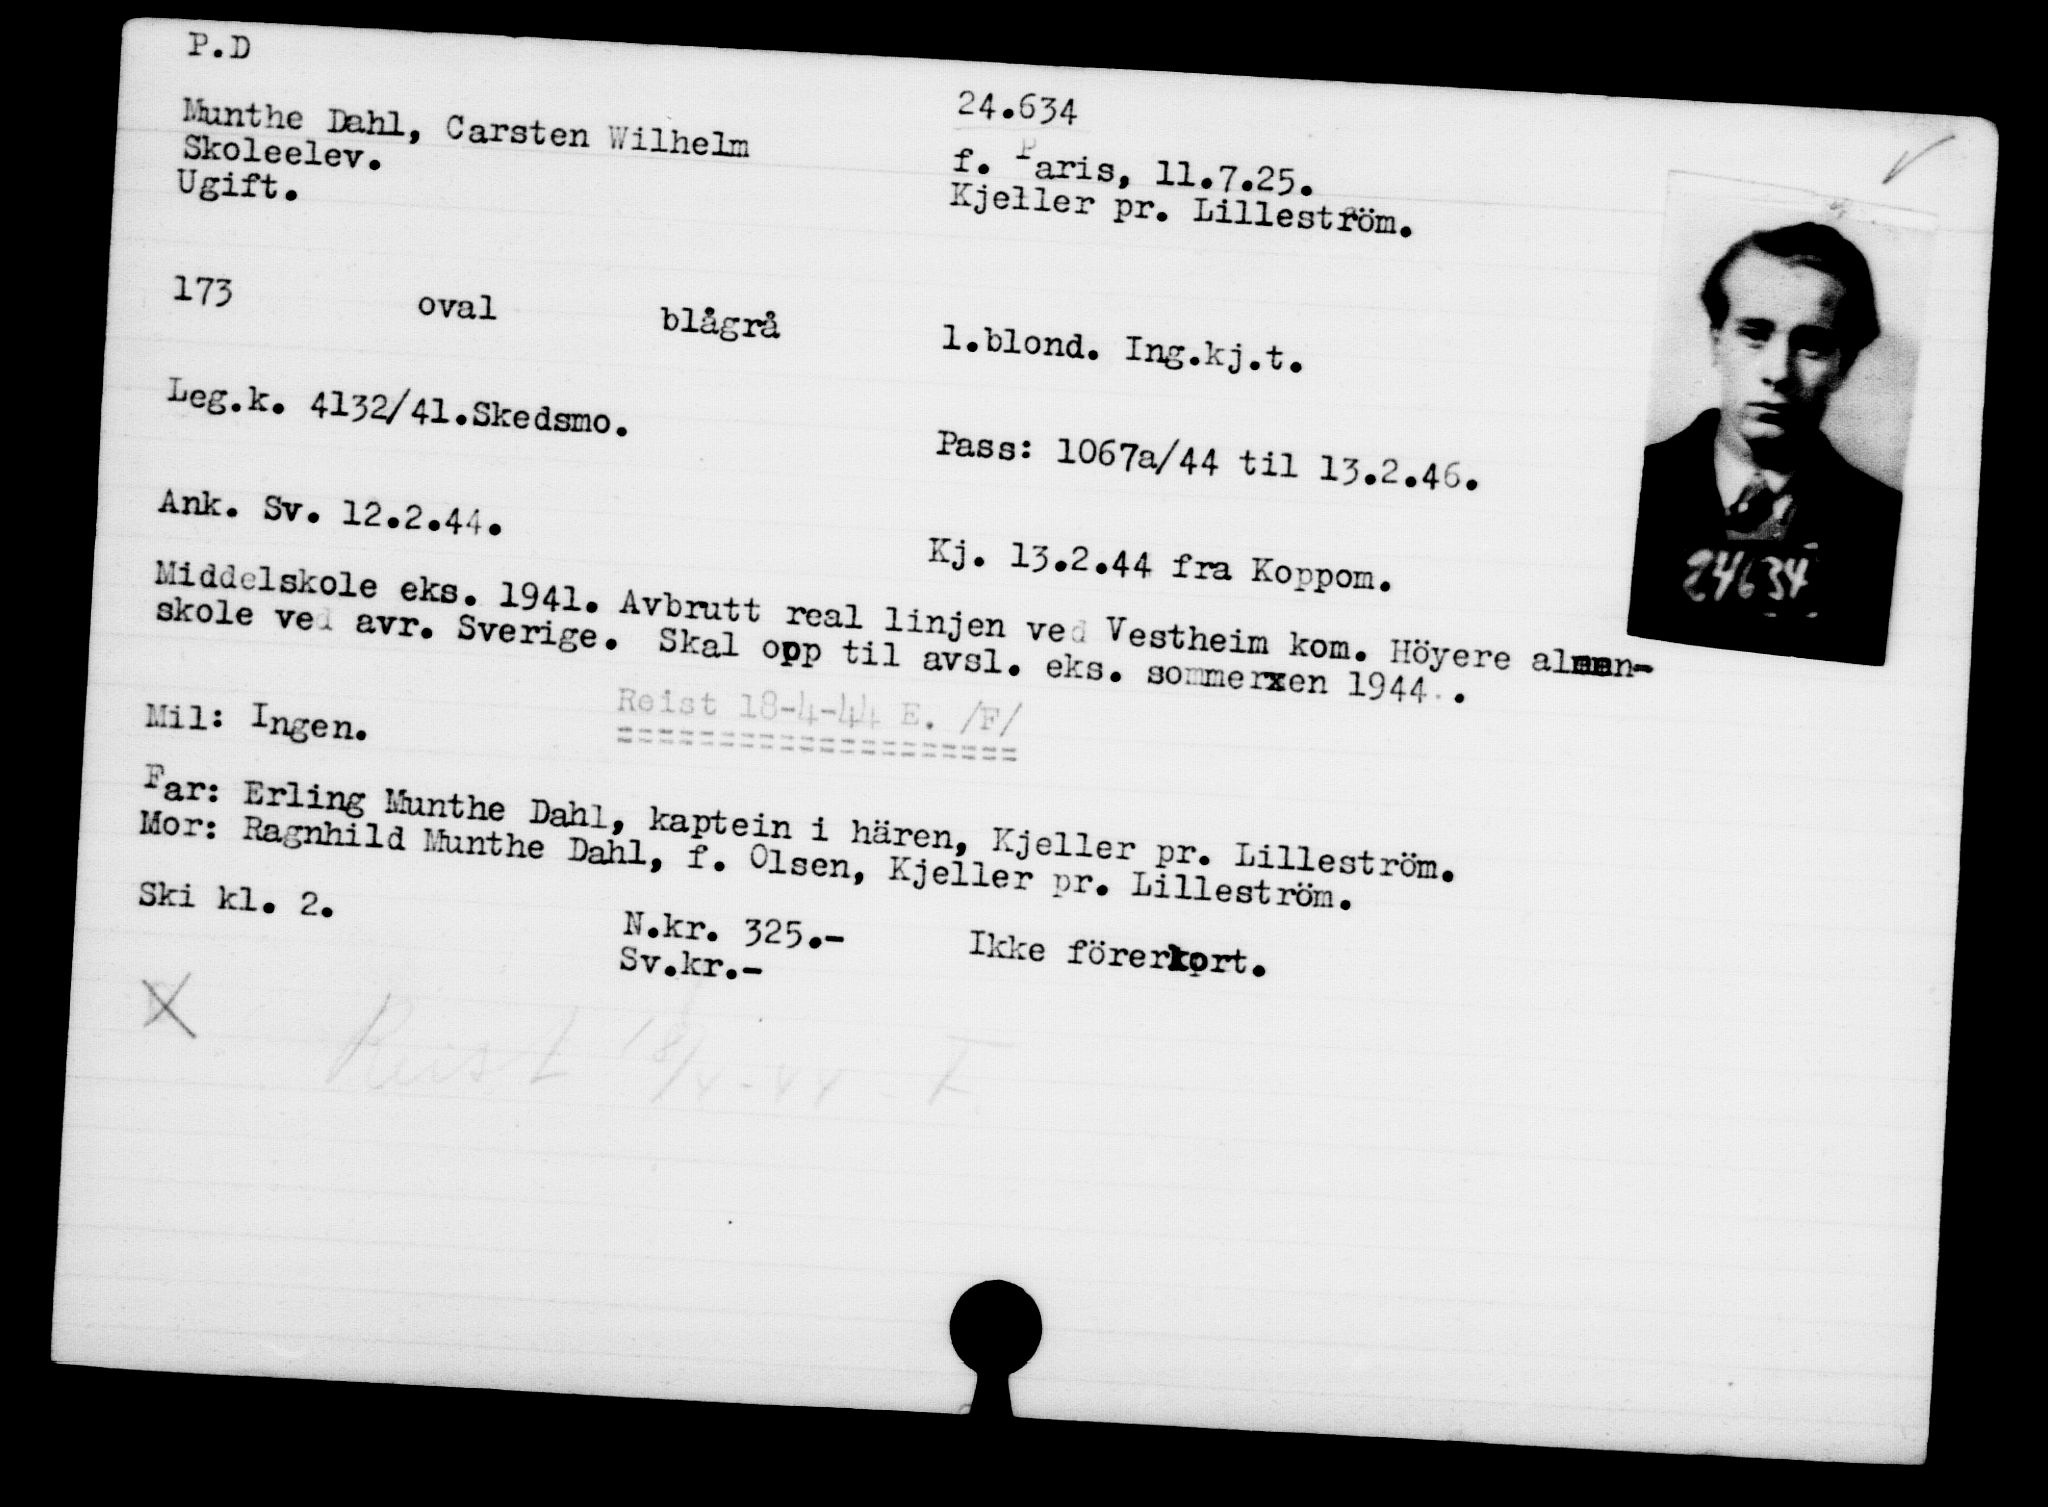 P.D
24.634
Munthe Dahl, Carsten Wilhelm
f. Paris, 11.7.25.
Skoleelev.
Kjeller pr. Lilleström.
Ugift.
173 oval blågrå l.blond. Ing.kj.t.
Leg.k. 4132/41.Skedsmo.
Pass: 1067a/44 til 13.2.46.
Ank. Sv. 12.2.44.
Kj. 13.2.44 fra Koppom.
24634
Middelskole eks. 1941. Avbrutt real linjen ved Vestheim kom. Höyere almen-
skole ved avr. Sverige. Skal opp til avsl. eks. sommerxen 1944 .
Reist 18-4-44 E. /F/
====================
Mil: Ingen.
Far: Erling Munthe Dahl, kaptein i hären, Kjeller pr. Lilleström.
Mor: Ragnhild Munthe Dahl, f. Olsen, Kjeller pr. Lilleström.
Ski kl. 2.
N.kr. 325.- Ikke förerkort.
Sv.kr.-
X
Reist 18/4-44 - F